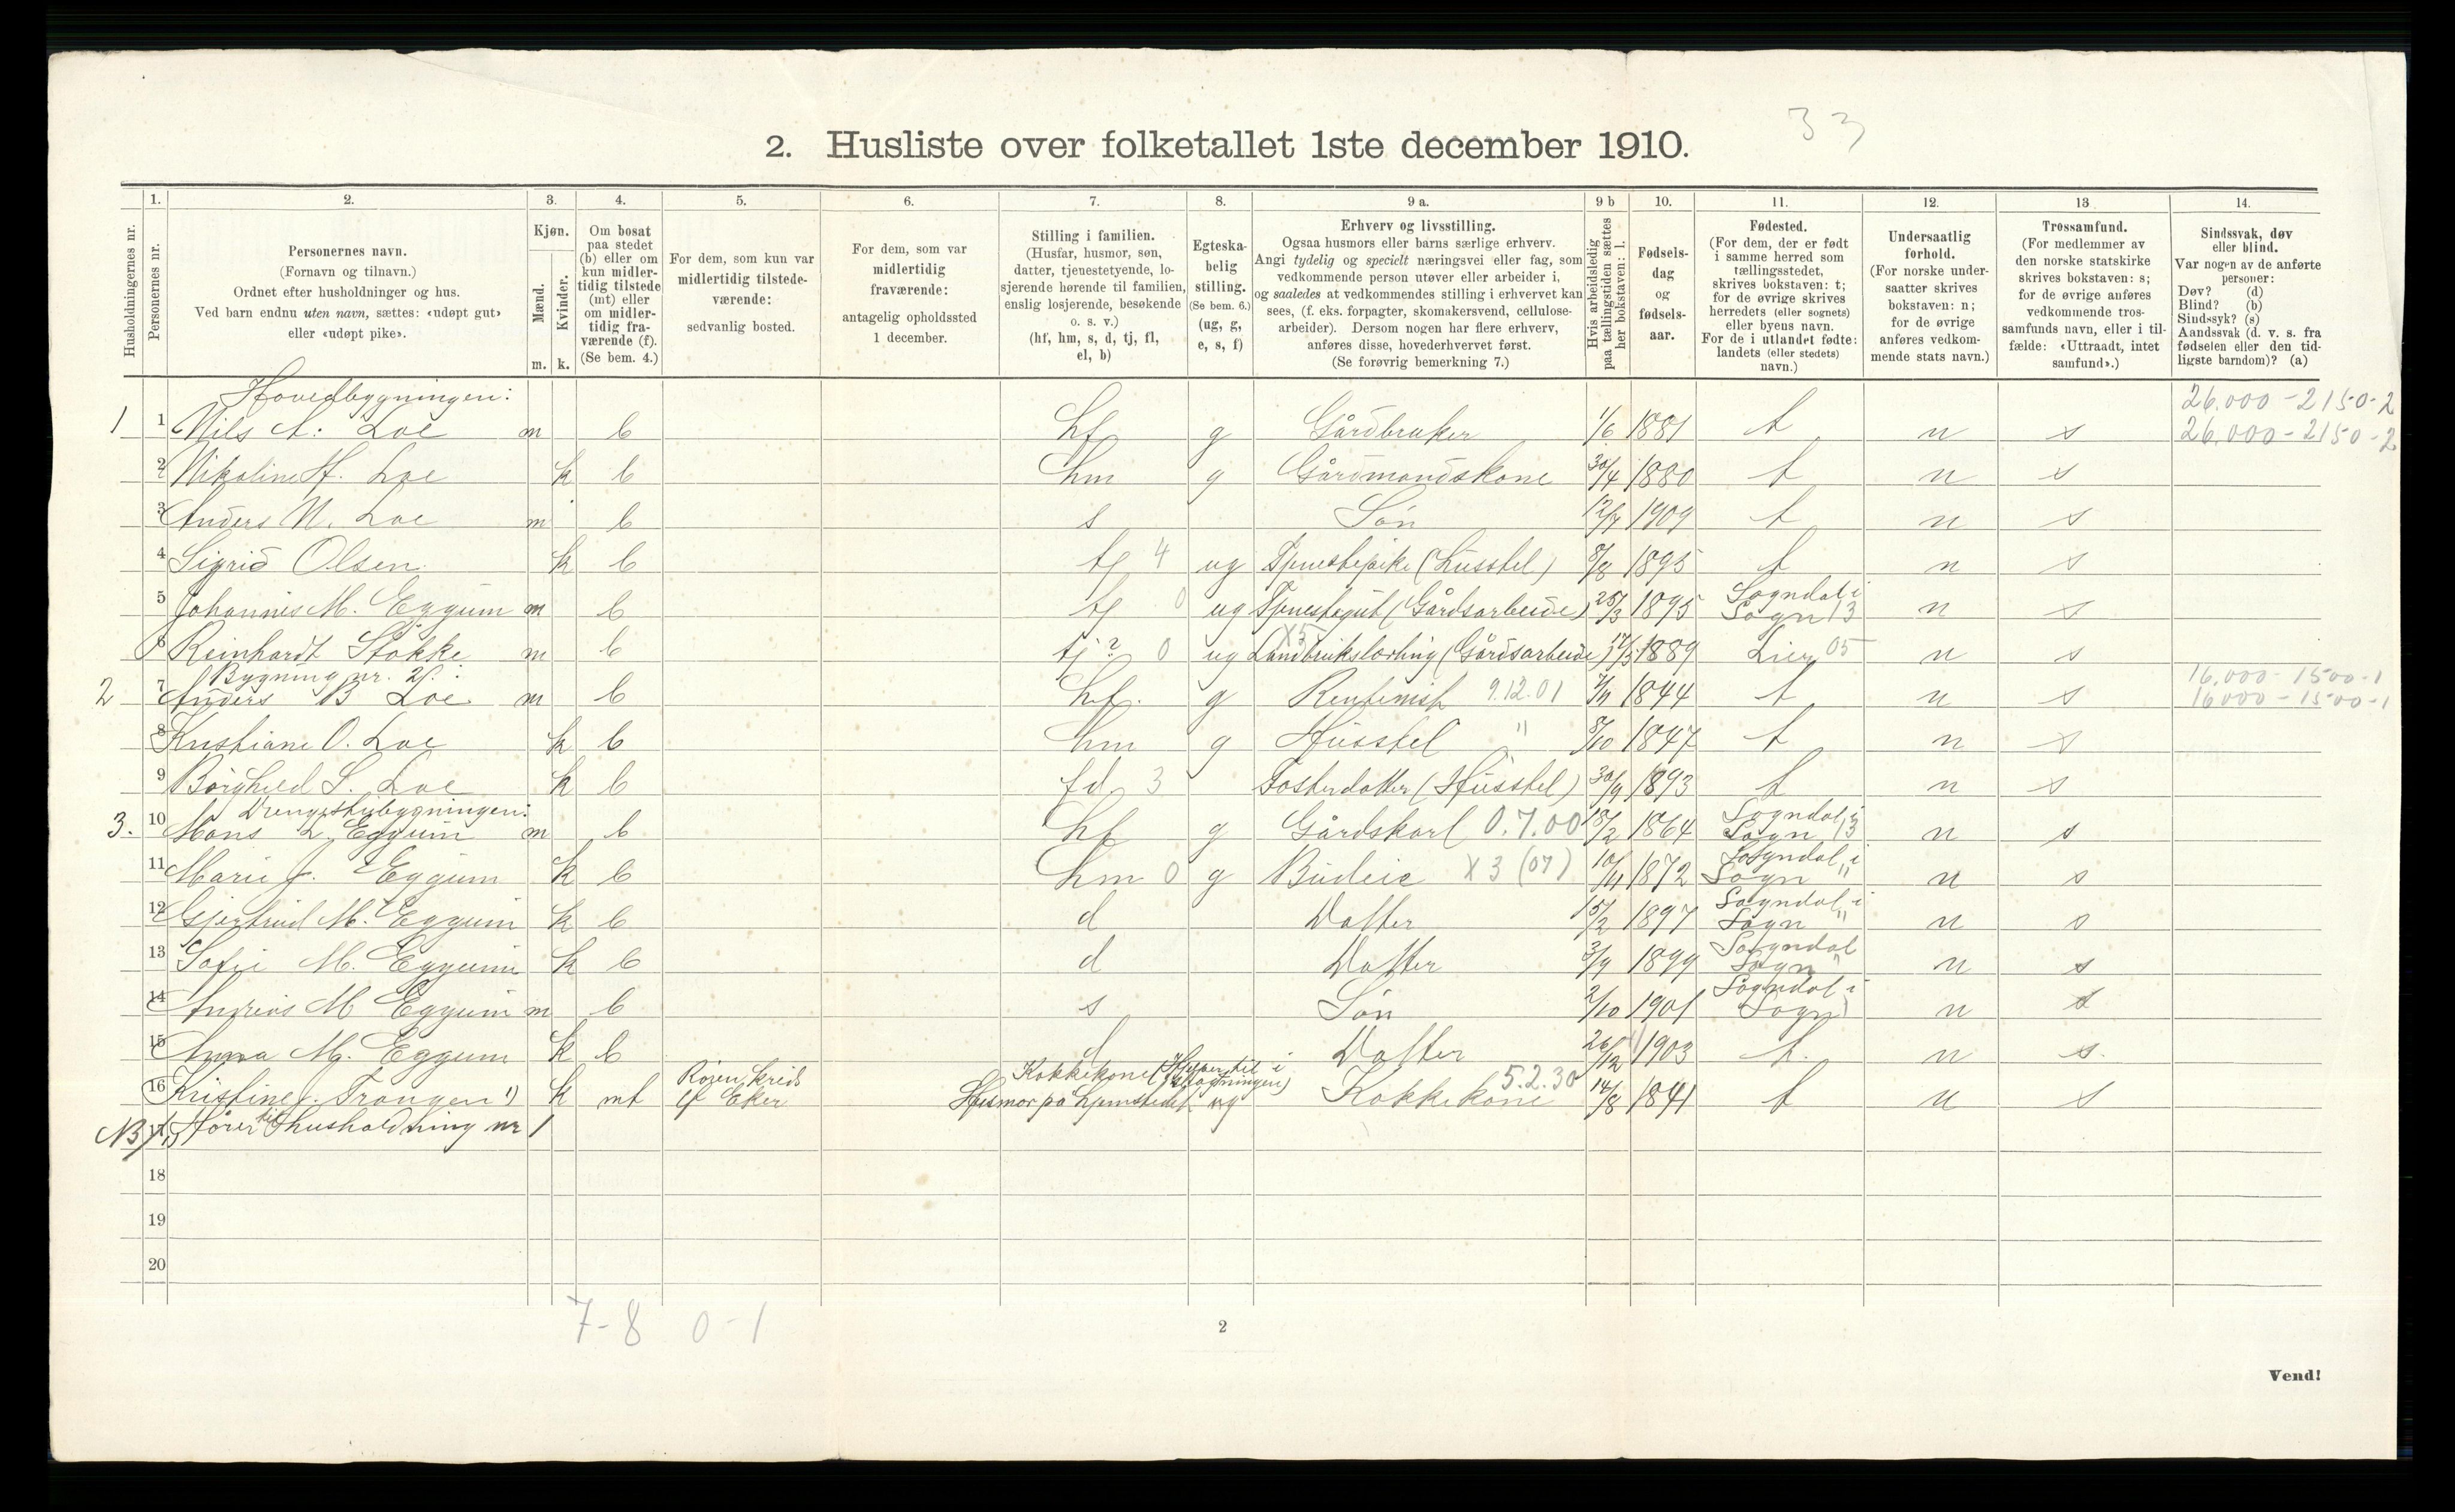 33
2. Husliste over folketallet 1ste december 1910.
Husholdningernes nr.
1.
Personernes nr.
2.
Personernes navn.
(Fornavn og tilnavn.)
Ordnet efter husholdninger og hus.
Ved barn endnu uten navn, sættes: «udøpt gut»
eller «udøpt pike».
3.
Kjøn.
Mænd.
Kvinder.
m. k.
4.
Om bosat
paa stedet
(b) eller om
kun midler-
tidig tilstede
(mt) eller
om midler-
tidig fra-
værende (f).
(Se bem. 4.)
5.
For dem, som kun var
midlertidig tilstede-
værende:
sedvanlig bosted.
6.
For dem, som var
midlertidig
fraværende:
antagelig opholdssted
1 december.
7.
Stilling i familien.
(Husfar, husmor, søn,
datter, tjenestetyende, lo-
sjerende hørende til familien,
enslig losjerende, besøkende
o. s. v.)
(hf, hm, s, d, tj, fl,
el, b)
8.
Egteska-
belig
stilling.
(Se bem. 6.)
(ug, g,
e, s, f)
9 a.
Erhverv og livsstilling.
Ogsaa husmors eller barns særlige erhverv.
Angi tydelig og specielt næringsvei eller fag, som
vedkommende person utøver eller arbeider i,
og saaledes at vedkommendes stilling i erhvervet kan
sees, (f. eks. forpagter, skomakersvend, cellulose-
arbeider). Dersom nogen har flere erhverv,
anføres disse, hovederhvervet først.
(Se forøvrig bemerkning 7.)
9 b
Hvis arbeidsledig
paa tællingstiden sættes
her bokstaven: l.
10.
Fødsels-
dag
og
fødsels-
aar.
11.
Fødested.
(For dem, der er født
i samme herred som
tællingsstedet,
skrives bokstaven: t;
for de øvrige skrives
herredets (eller sognets)
eller byens navn.
For de i utlandet fødte:
landets (eller stedets)
navn.)
12.
Undersaatlig
forhold.
(For norske under-
saatter skrives
bokstaven: n;
for de øvrige
anføres vedkom-
mende stats navn.)
13
Trossamfund.
(For medlemmer av
den norske statskirke
skrives bokstaven: s;
for de øvrige anføres
vedkommende tros-
samfunds navn, eller i til-
fælde: «Uttraadt, intet
samfund».)
14.
Sindssvak, døv
eller blind.
Var nogen av de anførte
personer:
Døv? (d)
Blind? (b)
Sindssyk? (s)
Aandssvak (d. v. s. fra
fødselen eller den tid-
ligste barndom)? (a)
Hovedbygningen: 26,000-2150-2
1 1 Nils A. Loe m b hf g Gårdbruker 1/6 1881 t n s 26,000-2150-2
2 Nikoline H. Loe k b hm g Gårdmandskone 30/4 1880 t n s
3 Anders N. Loe m b s Søn 12/7 1909 t n s
4 Sigrid Olsen k b tj 4 ug Tjenestepike (husstel) 8/8 1895 t n s
5 Johannes M. Eggum m b tj 0 ug Tjenestegut (Gårdsarbeide) 25/3 1895 Sogndal i Sogn 13 n s
6 Reinhardt Stokke m b tj ? 0 ug X5 Landbrukslærling (Gårdsarbeide) 17/3 1889 Lier 05 n s
Bygning nr. 2. 16,000-1500-1
2 7 Anders B Loe m b hf. g Rentenist 9.12.01 7/11 1844 t n s 16000-1500-1
8 Kristiane O. Loe k b hm g Husstel " 8/10 1847 t n s
9 Borghild S. Loe k b fd 3 Fosterdatter (Husstel) 30/9 1893 t n s
Drengestubygningen:
3. 10 Mons L. Eggum m b hf g Gårdskarl 0.7.00 18/2 1864 Sogndal i Sogn 13 n s
11 Marie J. Eggum k b hm 0 g Budeie X 3 (07) 10/11 1872 Sogndal i Sogn " n s
12 Gjertrud M. Eggum k b d Datter 15/2 1897 Sogndal i Sogn " n s
13 Sofie M. Eggum k b d Datter 3/9 1899 Sogndal Sogn " n s
14 Andreas M Eggum m b s Søn 2/10 1901 Sogndal i Sogn n s
15 Anna M. Eggum k b d Datter 26/12 1903 t. n s.
16 Kristine J. Trangen 1) k mt Eker Kokkekone Husmor på hjemstedet ug Kokkekone 5.2.30 14/8 1841 t n s
NB/ 17 1) Hører til husholdning nr 1
18
19
20
7-8 0-1
2
Vend!